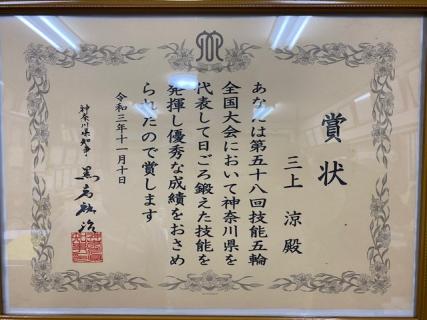 賞状
三上 涼 殿
あなたは第五十八回技能五輪
全国大会において神奈川県を
代表して日ごろ鍛えた技能を
発揮し優秀な成績をおさめ
られたので賞します
令和三年十一月十日
神奈川県知事 黒岩祐治